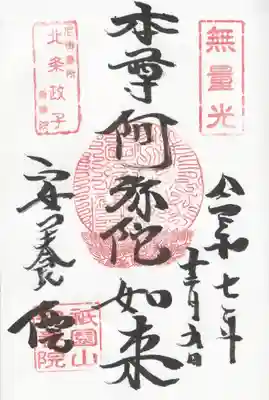 無量光
令和七年
十二月九日
本尊阿弥陀如来
尼御臺所
北条政子
安養院
祇園山
安養院